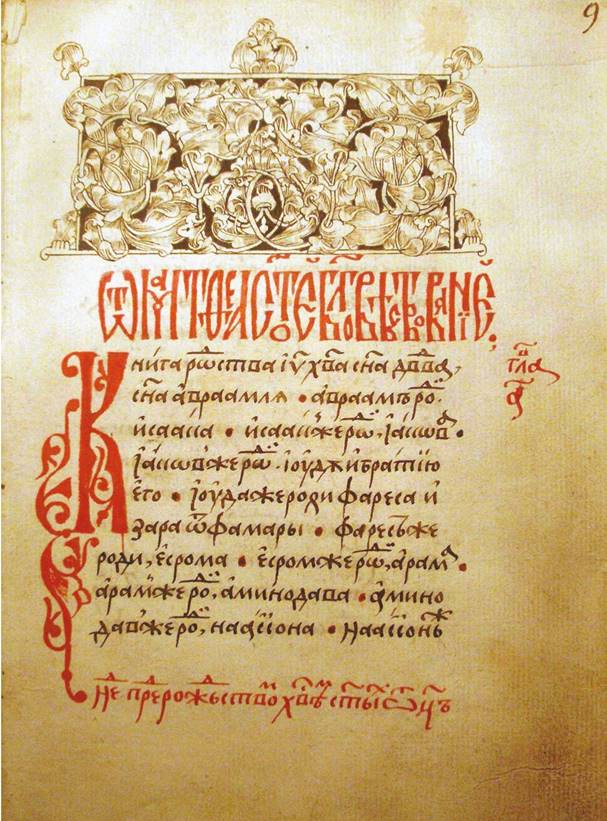 9
Ѿ МАТѲЕА СТ҃ОЕ БЛГ҃ОВѢСТВОВАНЇЕ
Книга рⷤⷭ҇ства іу҃ хв҃а сн҃а дв҃два,
сн҃а авраамля • авраамъ роⷣ.
исаака • исаакⸯже роⷣ, іаковⷶ •
іаковⸯже роⷣ. іоудꙋ и братїю
его • іоуда же роди фареса и
зара ѿ фамары • фаресъ же
роди, есрома • есромⸯже роⷣ, арамⷶ •
арамⸯже роⷣ, аминодава • амино
давⸯже роⷣ, наассона • Наассонъⷤ
глаⷡ
а҃
Нⷣе преⷣ рожьствоⷨ хв҃ѣⷨ ст҃ыⷯ ѿц҃ъ